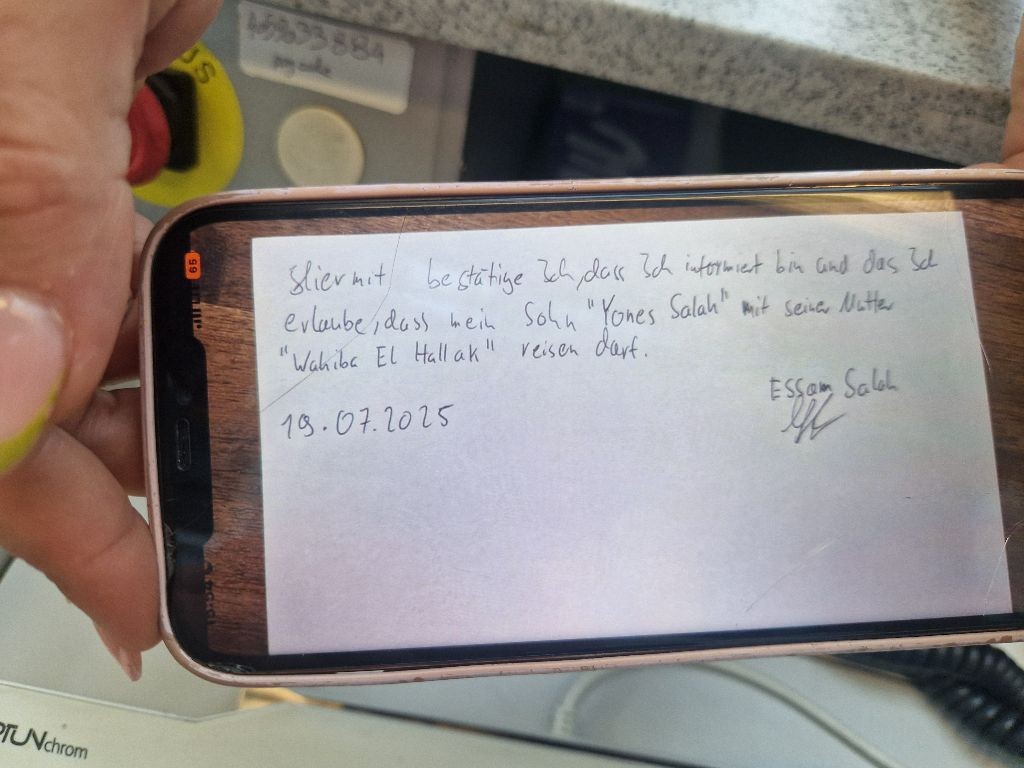 US
Hiermit bestätige Ich, dass Ich informiert bin und das Ich
erlaube, dass mein Sohn "Yones Salah" mit seiner Mutter
"Wahiba El Hallak" reisen darf.
Essam Salah
19.07.2025
65
chrom